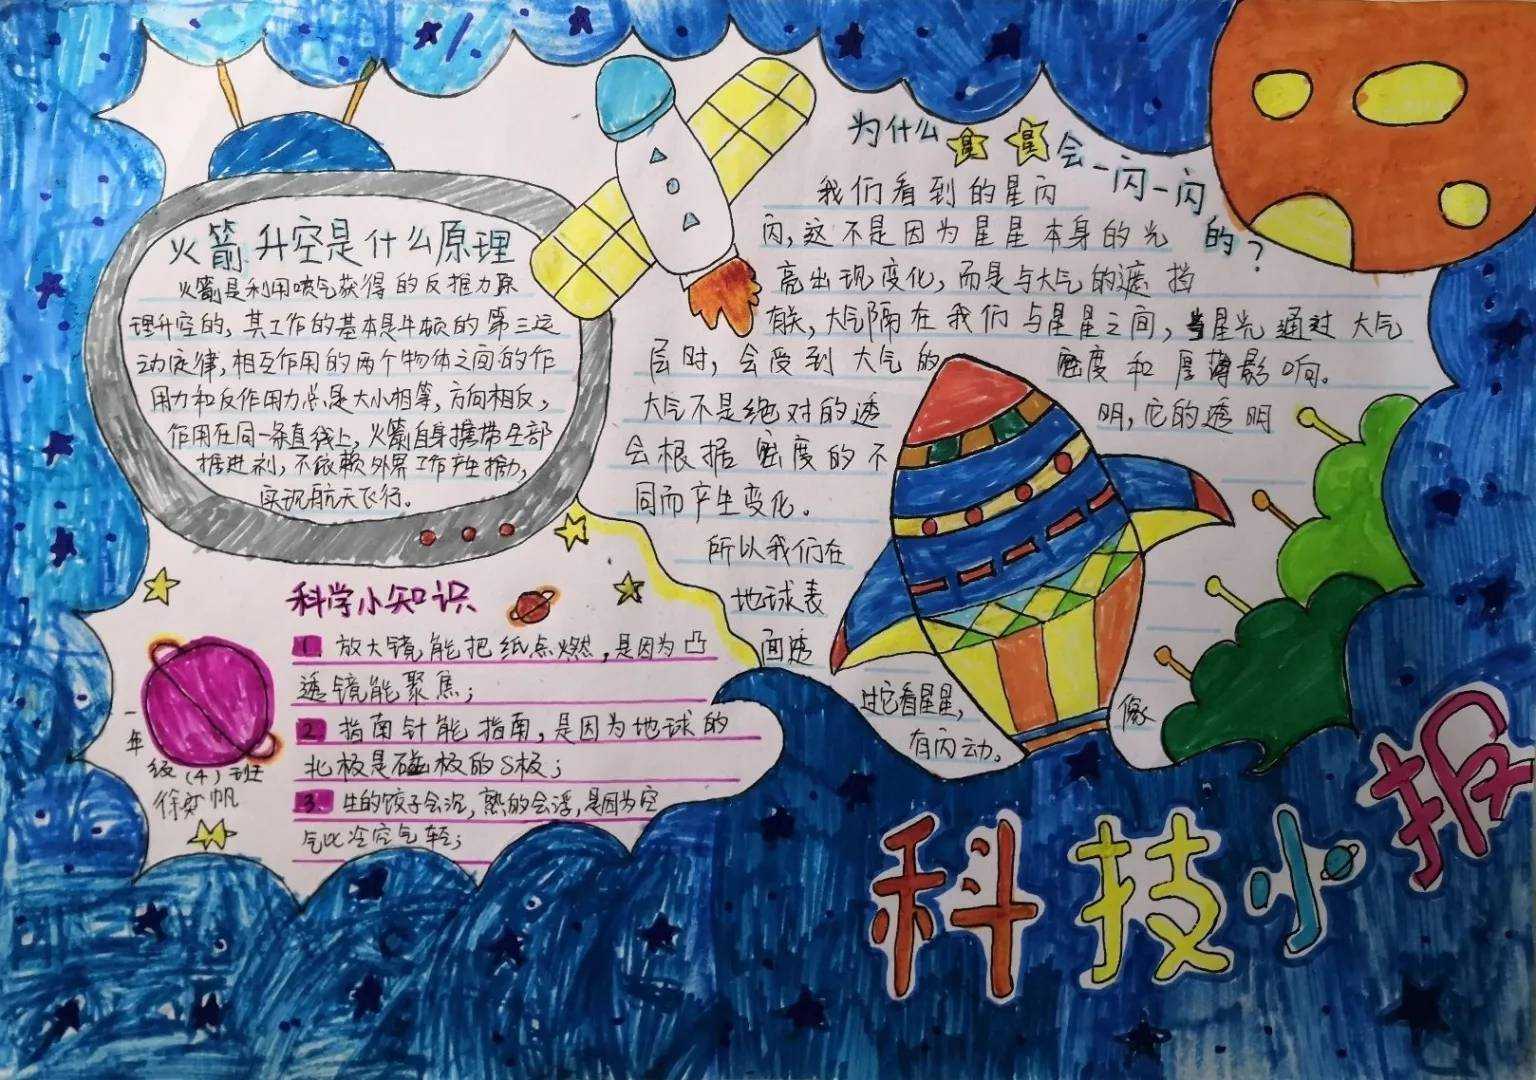 火箭升空是什么原理
火箭是利用喷气获得的反推力原
理升空的，其工作的基本是牛顿的第三运
动定律，相互作用的两个物体之间的作
用力和反作用力总是大小相等，方向相反，
作用在同一条直线上，火箭自身携带全部
推进剂，不依赖外界工作产生推力，
实现航天飞行。
为什么星星会一闪一闪的？
我们看到的星闪
闪，这不是因为星星本身的光
亮出现变化，而是与大气的遮挡
有关，大气隔在我们与星星之间，当星光通过大气
层时，会受到大气的密度和厚薄影响。
大气不是绝对的透明，它的透明
会根据密度的不
同而产生变化。
所以我们在
地球表
面透
过它看星星，像
有闪动。
科学小知识
1. 放大镜能把纸点燃，是因为凸
透镜能聚焦；
2. 指南针能指南，是因为地球的
北极是磁极的S极；
3. 生的饺子会沉，熟的会浮，是因为空
气比冷空气轻；
一年
级（4）班
徐奕帆
科技小报